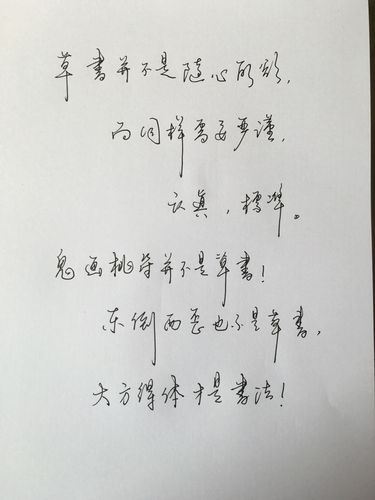 草书并不是随心所欲，
而同样需要严谨，
认真，标准。
鬼画桃符并不是草书！
东倒西歪也不是草书，
大方得体才是书法！